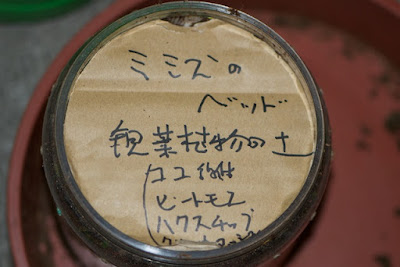 ミミズの
ベッド
観葉植物の土
ココ
ピートモス
ハクスチップ